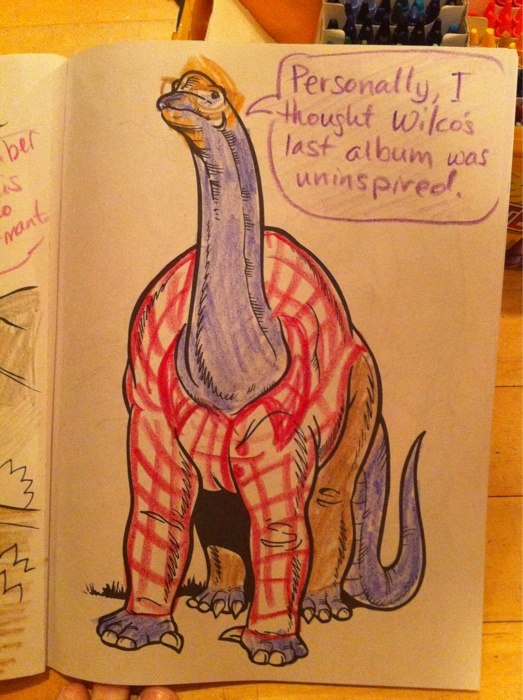 is
Personally, I
thought Wilco's
last album was
uninspired.